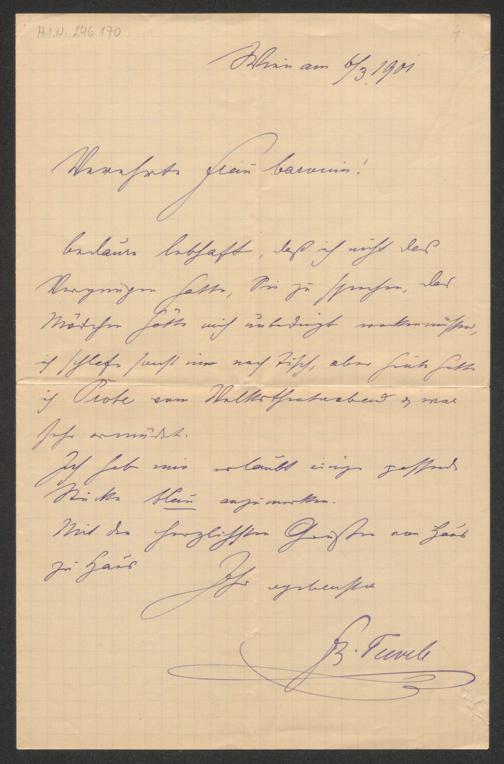 H.I.N. 246.170
Wien am 6/3. 1901
Verehrte Frau baronin!
bedaure lebhaft, daß ich nicht das
Vergnügen hatte, Sie zu sprechen, das
Mädchen hätte mich unbedingt wecken müssen,
ich schlafe sonst nie nach Tisch, aber heute hatte
ich Probe vom Volkstheaterabend u. war
sehr ermüdet.
Ich habe mir erlaubt einige passende
Stücke blau anzumerken.
Mit den herzlichsten Grüßen von Haus
zu Haus
Ihr ergebenster